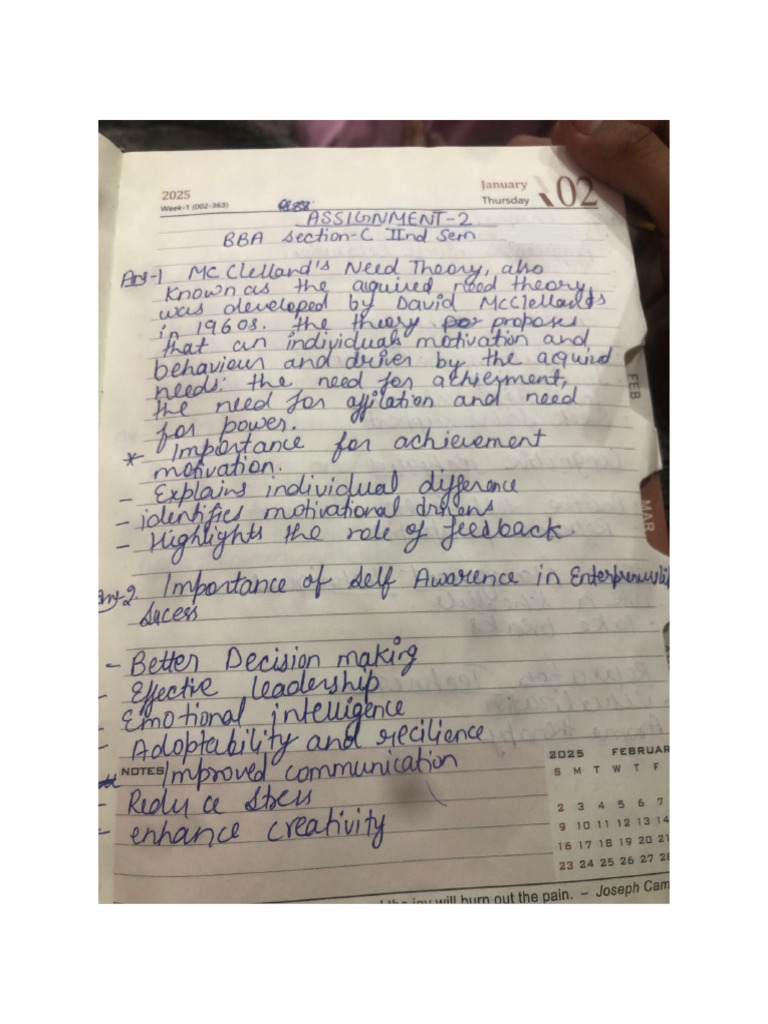 2025
Week-1 (002-363)
January
Thursday
02
ASSIGNMENT-2
BBA Section-C IInd Sem
Ans-1 McClelland's Need Theory, also
known as the aquired need theory,
was developed by David McClellands
in 1960s. the theory proposes
that an individuals motivation and
behaviour and driver by the acquired
needs: the need for achierment,
the need for affilation and need
for power.
* Importance for achievement
motivation.
- Explains individual difference
- identifies motivational drivers
- Highlights the role of feedback.
Ans-2. Importance of Self Awarence in
Sucess
- Better Decision making
- Effective leadership
- Emotional intelligence
- Adoptability and recilience
NOTES Improved communication
- Reduce Stress
- enhance creativity
FEB
MAR
2025 FEBRUAR
S M T W T F
2 3 4 5 6 7
9 10 11 12 13 14
16 17 18 19 20 21
23 24 25 26 27 28
the joy will burn out the pain. – Joseph Cam